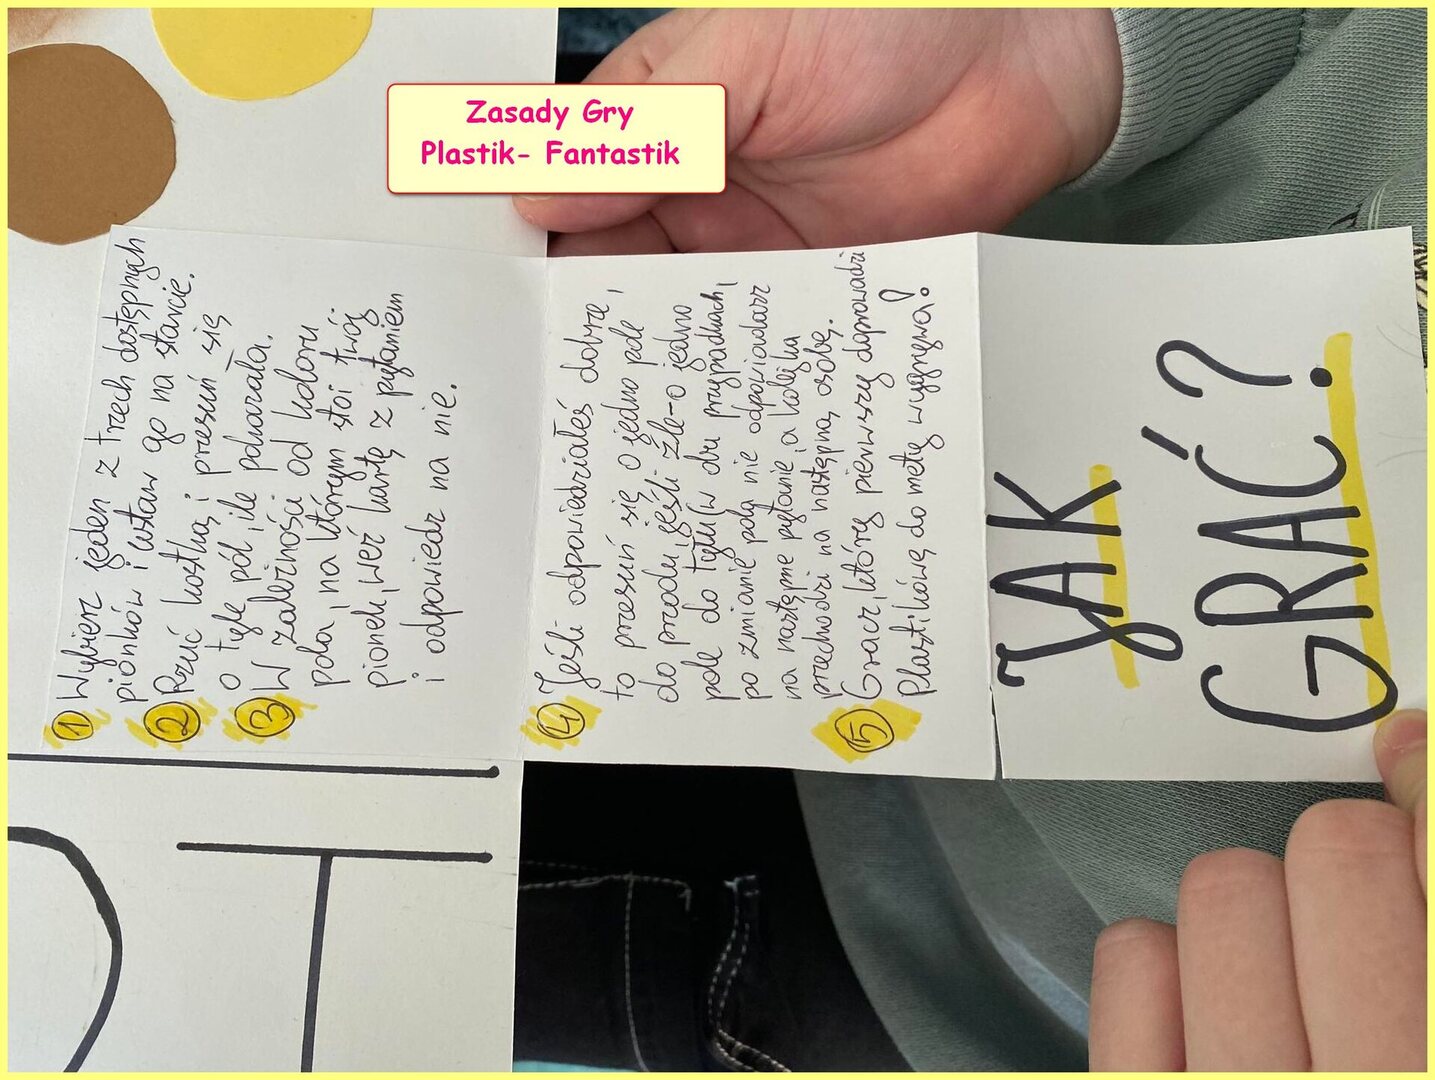 Zasady Gry
Plastik- Fantastik
JAK
GRAĆ?
1 Wybierz jeden z trzech dostępnych
pionków i ustaw go na starcie.
2 Rzuć kostką i przesuń się
o tyle pól, ile pokazała.
3 W zależności od koloru
pola, na którym stoi twój
pionek, weź kartę z pytaniem
i odpowiedz na nie.
4 Jeśli odpowiedziałeś dobrze,
to przesuń się o jedno pole
do przodu, jeśli źle-o jedno
pole do tyłu(w du przypadkach,
po zmianie pola nie odpowiadasz
na następne pytanie, a kolejka
przechodzi na następną osobę.
5 Gracz, który pierwszy doprowadzi
Plastikową do mety wygrywa!